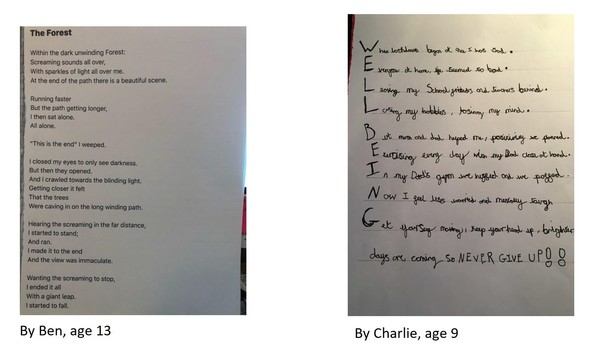 The Forest
Within the dark unwinding Forest:
Screaming sounds all over,
With sparkles of light all over me.
At the end of the path there is a beautiful scene.
Running faster
But the path getting longer,
I then sat alone.
All alone.
"This is the end" I weeped.
I closed my eyes to only see darkness.
But then they opened.
And I crawled towards the blinding light.
Getting closer it felt
That the trees
Were caving in on the long winding path.
Hearing the screaming in the far distance,
I started to stand;
And ran.
I made it to the end
And the view was immaculate.
Wanting the screaming to stop,
I ended it all
With a giant leap.
I started to fall.
By Ben, age 13
When lockdown began at the I was Sad.
Everyone at home, life seemed so bad.
Leaving my School and behind.
my hobbies, my mind.
But mum and dad helped me, positivity we
Exercising every day with my Dad close at hand.
In my Dad's gym we and we
Now I feel less worried and mentally tough
Get yourself moving, keep your head up, brighter
days are coming so NEVER GIVE UP!!
By Charlie, age 9